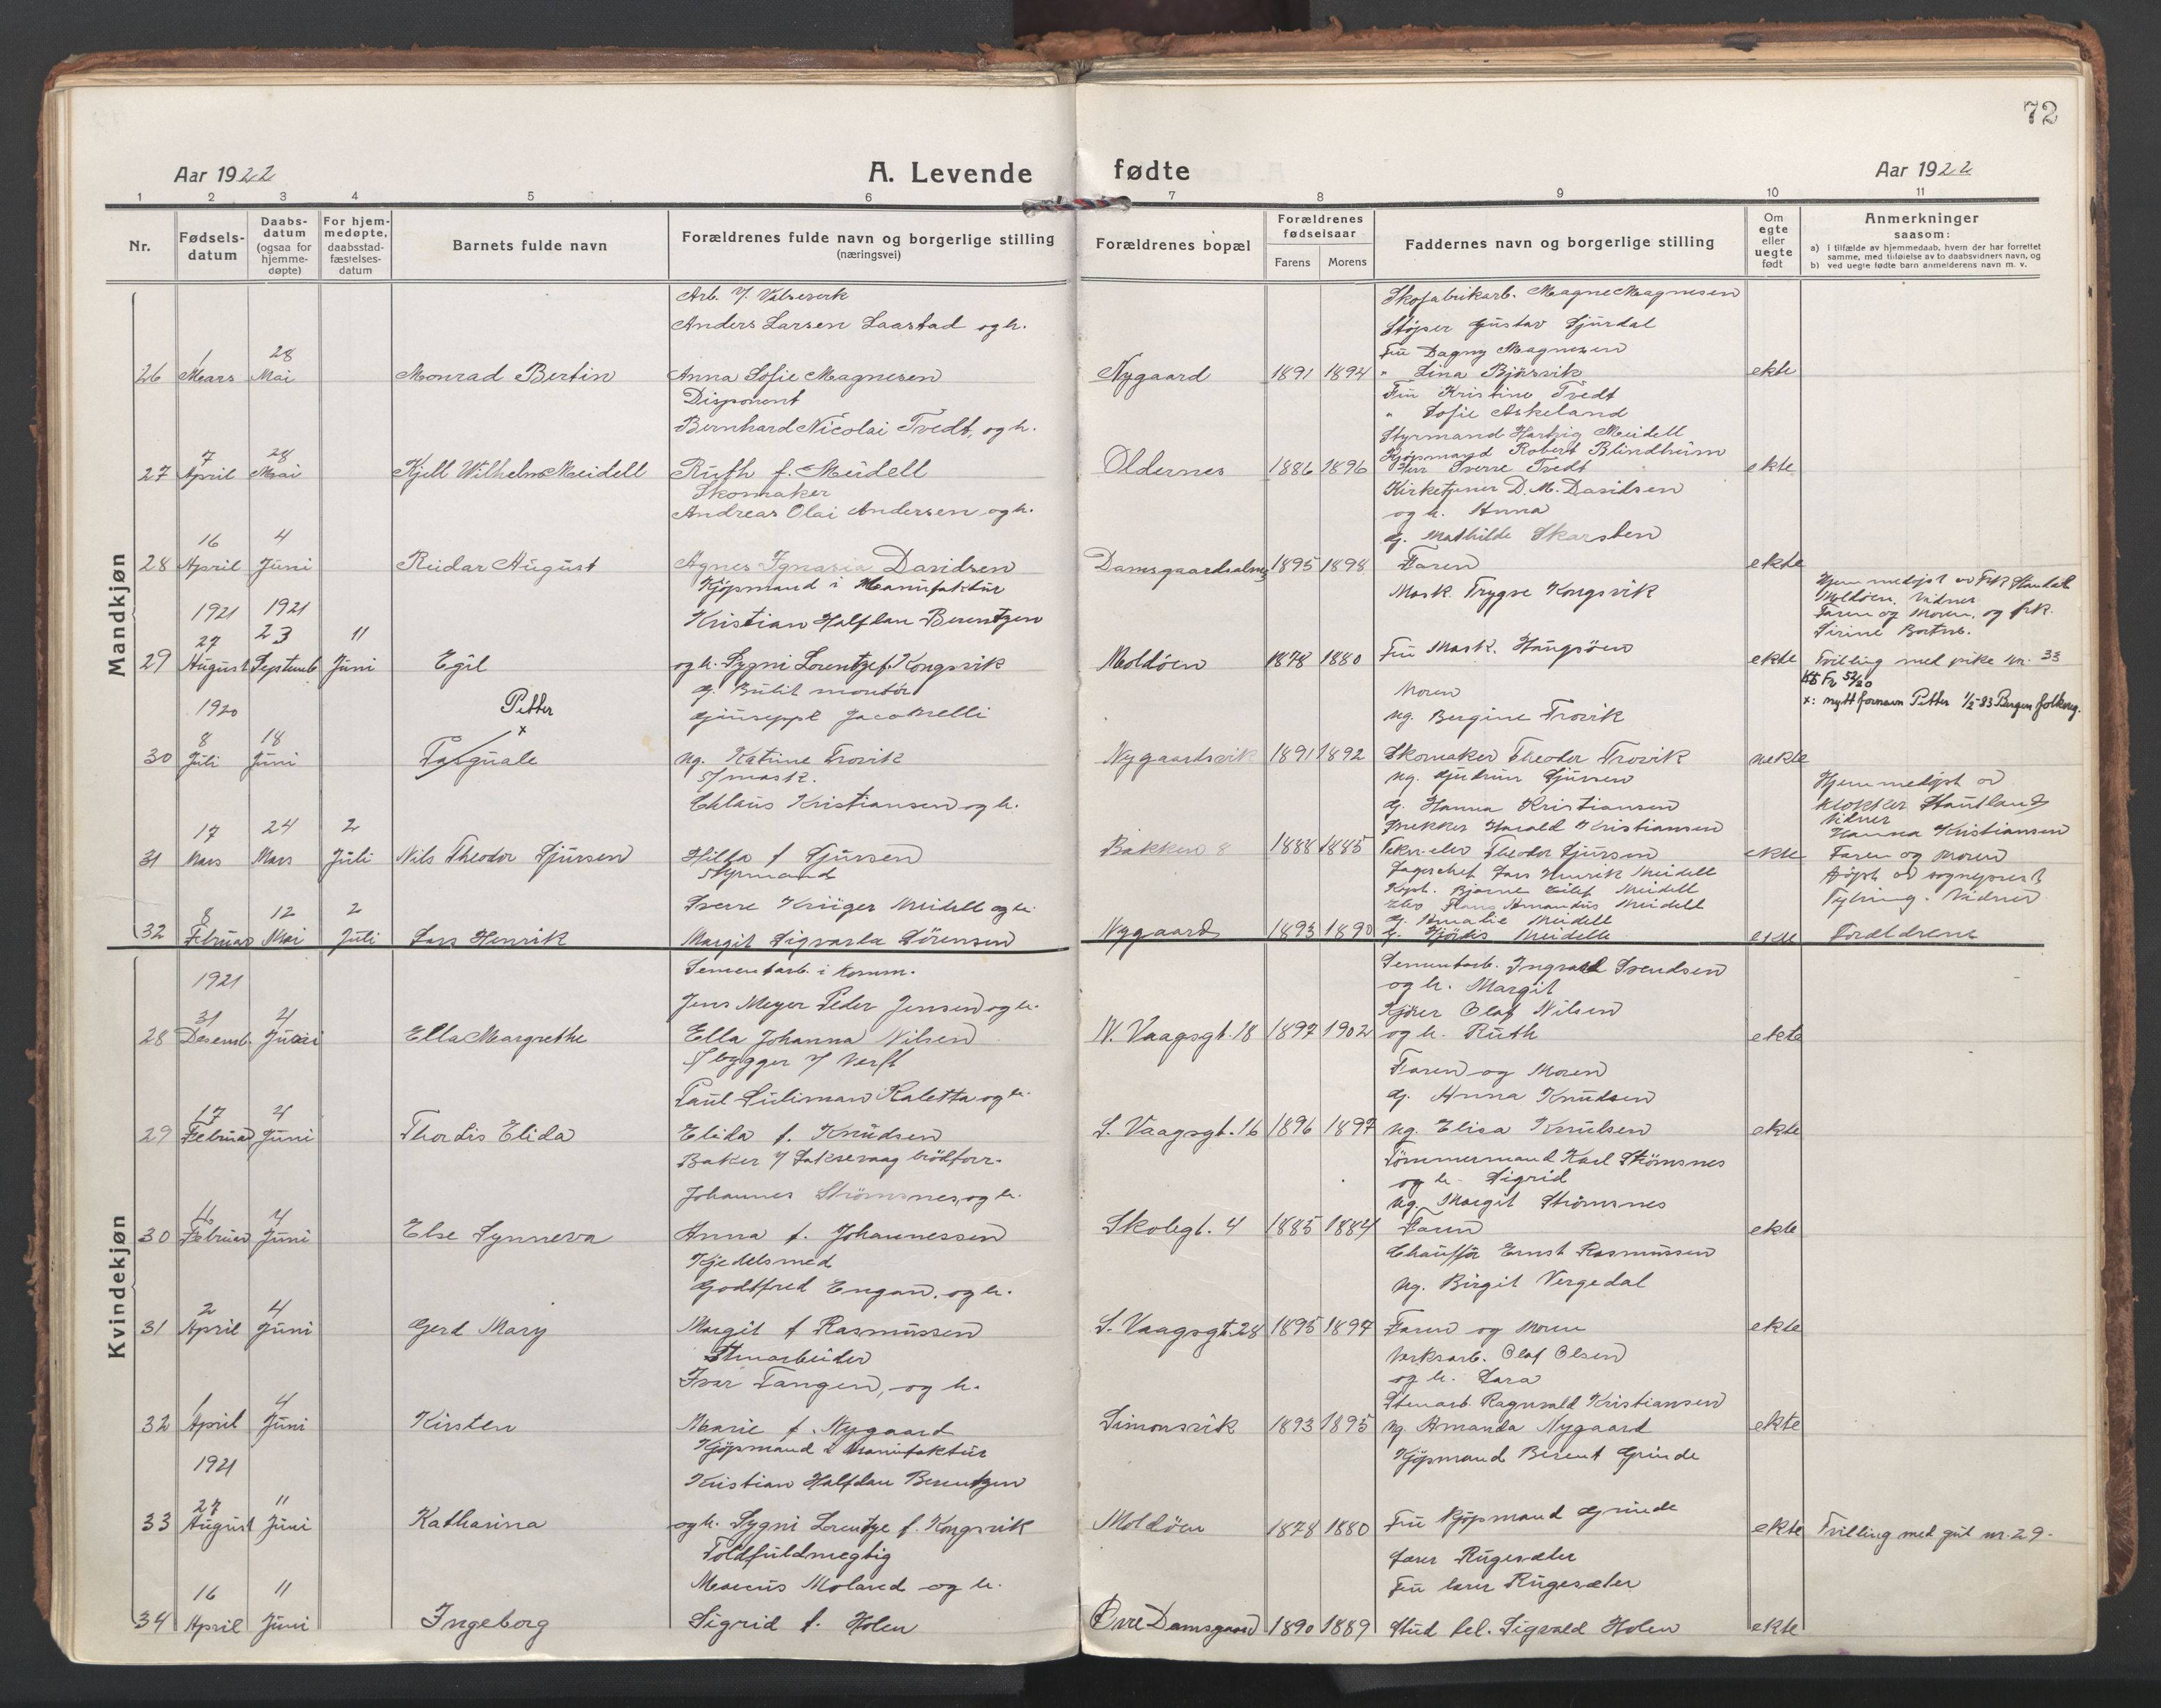 72
Aar 1922
A. Levende fødte
Aar 1922
1 2 3 4 5 6 7 8 9 10 11
Nr.
Fødsels-datum
Daabs-datum (ogsaa for hjemme-døpte)
For hjem-medøpte, daabsstad-fæstelses-datum
Barnets fulde navn
Forældrenes fulde navn og borgerlige stilling (næringsvei)
Forældrenes bopæl
Forældrenes fødselsaar
Farens Morens
Faddernes navn og borgerlige stilling
Om egte eller uegte født
Anmerkninger saasom:
a) i tilfælde av hjemmedaab, hvem der har forrettet samme, med tilføielse av to daabsvidners navn, og
b) ved uegte fødte barn anmelderens navn m. v.
Mandkjøn
Arb. Valseverk
Anders Larsen Laastad og h.
26 1 Mars 28 Mai Monrad Bertin Anna Sofie Magnesen Nygaard 1891 1894 ekte
Skofabrikarb. Magne Magnesen
Støper Gustav Sjurdal
Fru Dagny Magnesen
" Lina Bjørsvik
Disponent
Bernhard Nicolai Tvedt, og h.
27 7 April 28 Mai Kjell Wilhelm Meidell Ruth f. Meidell Oldernes 1886 1896 ekte
Fru Kristine Tvedt
" Sofie Askeland
Styrmand Hartvig Meidell
Kjøpmand Robert Blindheim
Herr Sverre Tvedt
Skomaker
Andreas Olai Andersen og h.
28 16 April 4 Juni Reidar August Agnes Ignasia Davidsen Damsgaardsalmg 1895 1898 ekte
Kirketjener D. M. Davidsen
og h. Anna
g. Mathilde Skarsten
Faren
Kjøpmand i Manufaktur
Kristian Halfdan Berentzen
1921 1921
29 27 August 23 Septemb 11 Juni Egil og h. Sygni Lorentze f. Kongsvik Moldøen 1878 1880 ekte
Mask. Trygve Kongsvik
Fru Mask. Haugsøen
Hjemmedøpt av Frk
Moldøen. Vidner
Faren og Moren, og frk.
Sirine
Tvilling med pike nr. 33
x: nytt fornavn Petter 1/2-83 Bergen folkereg.
g. montør
Giuseppe Jacobelli
1920 Petter x
30 8 Juli 18 Juni Pasquale ug. Katrine Trovik Nygaardsvik 1891 1892 uekte
Moren
ug. Bergine Trovik
Skomaker Theodor Trovik
ug. Gudrun Sjursen
mask.
Chlaus Kristiansen og h.
31 17 Mars 24 Mars 2 Juli Nils Theodor Sjursen Hilda f Sjursen Bakken 8 1888 1885 ekte
g. Hanna Kristiansen
Snekker Harald Kristiansen
Tekn. elev Theodor Sjursen
Hjemmedøpt av
klokker Hautland
Vidner
Hanna Kristiansen
Faren og Moren
Styrmand
Sverre Krüger Meidell og h.
32 8 Februar 12 Mai 2 Juli Lars Henrik Margit Sigvarda Sørensen Nygaard 1893 1890 ekte
Lars Henrik Meidell
Kapt. Bjarne Meidell
Hans Amandus Meidell
g. Amalie Meidell
Meidell
døpt av sogneprest
Vidner
Foreldrene
Kvindekjøn
1921
Sementarb. i Komm.
Jens Meyer Peder Jensen og h.
28 31 Desemb. 4 Juni Ella Margrethe Ella Johanna Nilsen N. Vaagsgt. 18 1897 1902 ekte
Sementarb. Ingvald Svendsen
og h. Margit
Kjører Olaf Nilsen
og h. Ruth
bygger Verft
Paul Suliman Kaletta og h.
29 17 Februar 4 Juni Thordis Elida Elida f. Knudsen S. Vaagsgt. 16 1896 1897 ekte
Faren og Moren
g. Anna Knudsen
ug. Elisa Knudsen
Baker Laksevaag brødforr.
Johannes Strømsnes, og h.
30 11 Februar 4 Juni Else Synneva Anna f. Johannessen Skolegt. 4 1885 1884 ekte
Tømmermand Karl Strømsnes
og h. Sigrid
ug. Margit Strømsnes
Faren
Kjedelsmed
Godtfred Engan, og h.
31 2 April 4 Juni Gerd Mary Margit f Rasmussen S. Vaagsgt. 28 1895 1897 ekte
Chauffør Ernst Rasmussen
ug. Birgit Vergedal
Faren og Moren
Stenarbeider
Ivar Tangen, og h.
32 1 April 4 Juni Kirsten Marie f. Nygaard Simonsvik 1893 1895 ekte
Verksarb. Olaf Olsen
og h. Lara
Stenarb. Ragnvald Kristiansen
ug. Amanda Nygaard
Kjøpmand i Manufaktur
Kristian Halfdan Berentzen
1921
33 27 August 11 Juni Katharina og h. Sygni Lorentze f. Kongsvik Moldøen 1878 1880 ekte
Kjøpmand Berent Grinde
Fru Kjøpmand Grinde
Tvilling med gut nr. 29.
Toldfuldmegtig
Marcus Moland og h.
34 16 April 11 Juni Ingeborg Sigrid f. Holen Øvre Damsgaard 1890 1889 ekte
Lærer Rugesæter
Fru lærer Rugesæter
Stud fil. Sigvald Holen